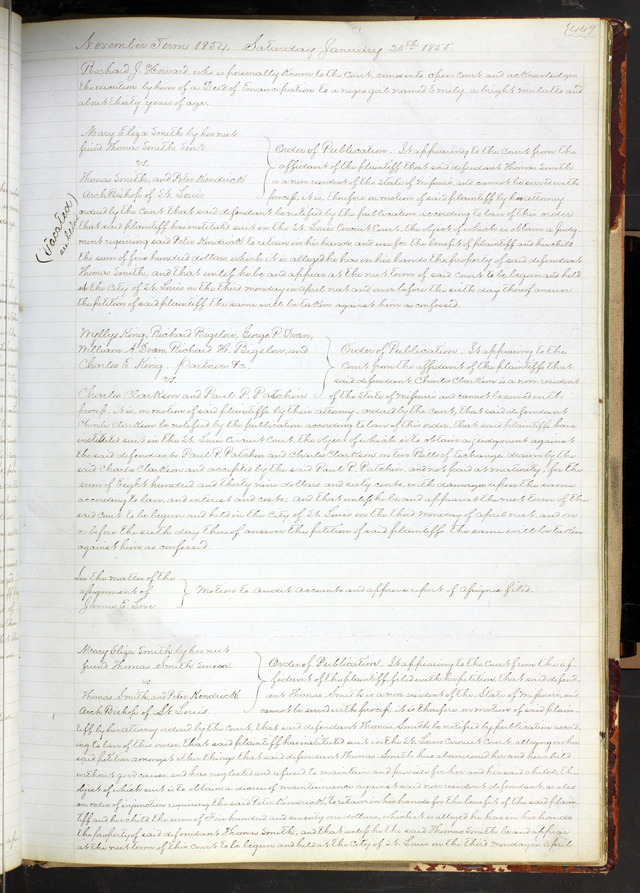 449
November Term 1854. Saturday January 20th 1855.
Richard J. Howard, who is personally known to the Court, comes into open Court and acknowledges
the execution by him of a Deed of Emancipation to a negro girl named Emily a bright mulatto and
about thirty years of age.
Mary Eliza Smith by her next
friend Thomas Smith Senr
vs.
Thomas Smith, and Peter Kendrick
Arch Bishop of St. Louis
(Vacated)
see below
Order of Publication. It appearing to the Court from the
affidavit of the plaintiff that said defendant Thomas Smith
is a non resident of the State of Missouri and cannot be served with
process, it is, therefore on motion of said plaintiff by her attorney
ordered by the Court that said defendant be notified by the publication according to law of this order
that said plaintiff has instituted suit in the St. Louis Circuit Court, the object of which is to obtain a judg-
ment requiring said Peter Kendrick to retain in his hands and use for the benefit of plaintiff and her child
the sum of five hundred dollars which it is alleged he has in his hands the property of said defendant
Thomas Smith, and that unless he be and appear at the next term of said Court to be begun and held
at the City of St. Louis on the third monday in April next and on or before the sixth day thereof answer
the petition of said plaintiff the same will be taken against him as confessed.
Wyllys King, Richard Bigelow, George P. Doan,
William A. Doan, Richard H. Bigelow, and
Charles E. King. Partners &c.
vs.
Charles Clarkson and Paul P. Patchin
Order of Publication. It appearing to the
Court from the affidavit of the plaintiffs that
said defendant Charles Clarkson is a non resident
of the State of Missouri and cannot be served with
process. it is, on motion of said plaintiffs by their attorney, ordered by the Court, that said defendant
Charles Clarkson be notified by the publication according to law of this order, that said plaintiffs have
instituted suit in the St. Louis Circuit Court, the object of which is to obtain a judgment against
the said defendants Paul P. Patchin and Charles Clarkson on two Bills of Exchange drawn by the
said Charles Clarkson and accepted by the said Paul P. Patchin, and not paid at maturity, for the
sum of Eight hundred and thirty nine dollars and sixty cents, with damages upon the same
according to law, and interest and costs; and that unless he be and appear at the next term of the
said Court to be begun and held in the City of St. Louis on the third monday of April next, and on
or before the sixth day thereof answer the petition of said plaintiffs the same will be taken
against him as confessed.
In the matter of the
assignment of
James E. Love
Motion to audit accounts and approve report of assignee filed.
Mary Eliza Smith by her next
friend Thomas Smith Senior
vs.
Thomas Smith and Peter Kendrick
Arch Bishop of St. Louis
Order of Publication. It appearing to the Court from the af-
fidavit of the plaintiff filed with her petition that said defend-
ant Thomas Smith is a non resident of the State of Missouri, and
cannot be served with process, it is therefore on motion of said plain-
tiff by her attorney ordered by the Court, that said defendant Thomas Smith be notified by publication accord-
ing to law of this order, that said plaintiff has instituted suit in the St. Louis Circuit Court, alleging in her
said petition amongst other things that said defendant Thomas Smith has abandoned her and her child
without good cause, and has neglected and refused to maintain and provide for her and her said child; the
object of which suit is to obtain a decree of maintenance against said non resident defendant, as also
an order of injunction requiring the said Peter Kendrick, to retain in his hands for the benefit of the said plain-
tiff and her child the sum of Five hundred and seventy one dollars, which it is alleged he has in his hands
the property of said defendant Thomas Smith, and that unless he the said Thomas Smith be and appear
at the next term of this Court to be begun and held at the City of St. Louis on the third monday in April